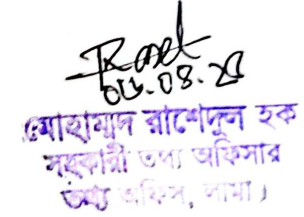 ০৬.০৪.২৫
মোহাম্মদ রাশেদুল হক
সহকারী তথ্য অফিসার
তথ্য অফিস, লামা।